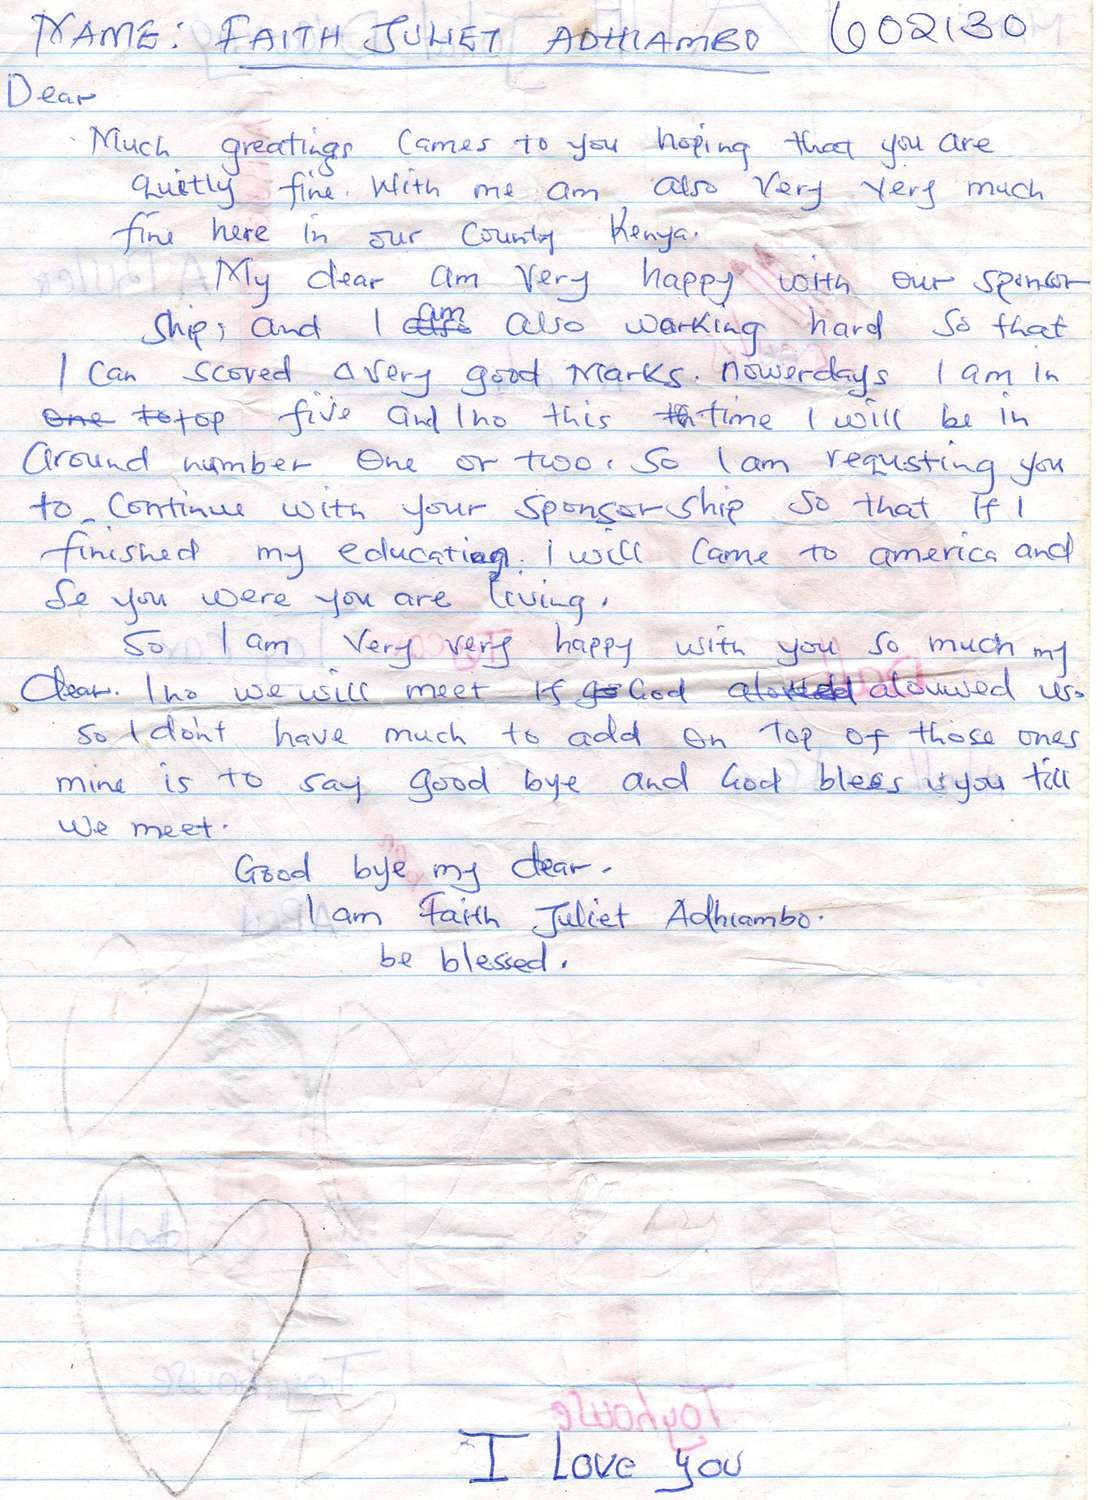 NAME: FAITH JULIET ADHIAMBO 602130
Dear
Much greatings Cames to you hoping that you are
quietly fine. With me am also Very Very much
fine here in our County Kenya.
My dear am Very happy with our sponsor
ship; and I am also working hard so that
I can scored a very good marks. nowerdays I am in
top five and I no this time I will be in
around number one or two. So I am requsting you
to continue with your sponsorship so that if I
finished my education. I will came to america and
Se you were you are living.
So I am very very happy with you so much my
dear. I no we will meet if God alouwed us.
so I don't have much to add on top of those ones
mine is to say good bye and God blees you till
we meet.
Good bye my dear.
I am Faith Juliet Adhiambo.
be blessed.
Toyhouse
I Love you